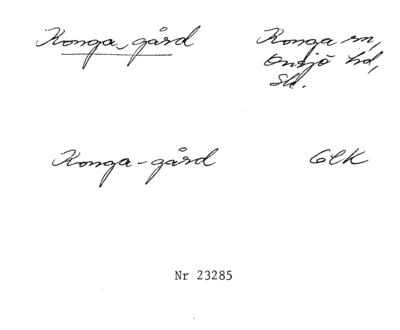 Konga, gård
Konga sn,
Onsjö hd,
Sk.
Konga-gård
GEK
Nr 23285